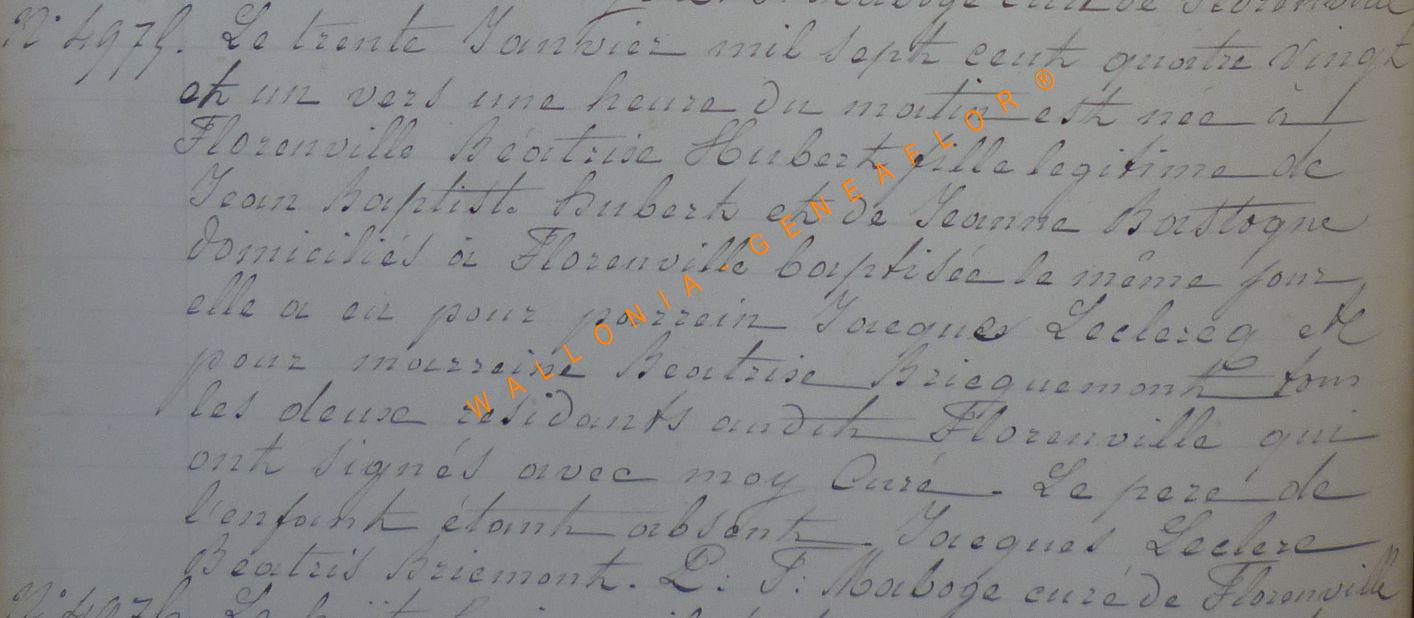 curé de Florenville
N° 4975. Le trente Janvier mil sept cent quatre Vingt
et un vers une heure du matin est née à
Florenville Béatrise Hubert fille legitime de
Jean Baptiste Hubert et de Jeanne Bastogne
domiciliés à Florenville baptisée le même jour
elle a eu pour parrein Jacques Leclercq et
pour marreine Beatrise Bricquemont tous
les deux residants audit Florenville qui
ont signés avec moy Curé. Le pere de
l'enfant étant absent. Jacques Leclerc
Beatris Briemont. P: F: Maboge curé de Florenville
N° 4976 Le huit
WALLONIA-GENEAFLOR®